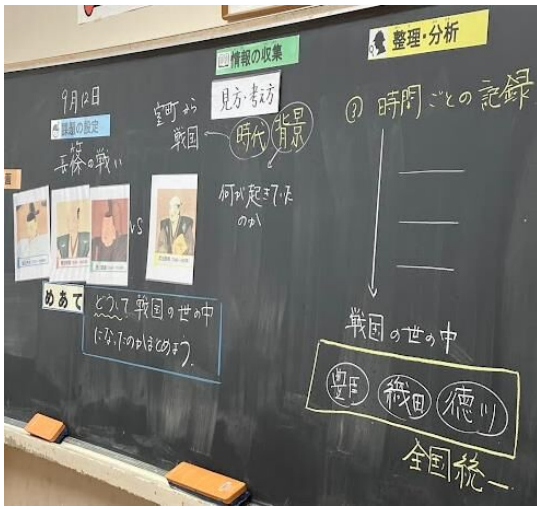 9月12日
課題の設定
長篠の戦い
VS
めあて
どうして戦国の世の中
になったのかまとめよう。
情報の収集
見方・考え方
室町から
戦国
時代
背景
何が起きていた
のか
整理・分析
③ 時間ごとの記録
戦国の世の中
豊臣
織田
徳川
全国統一